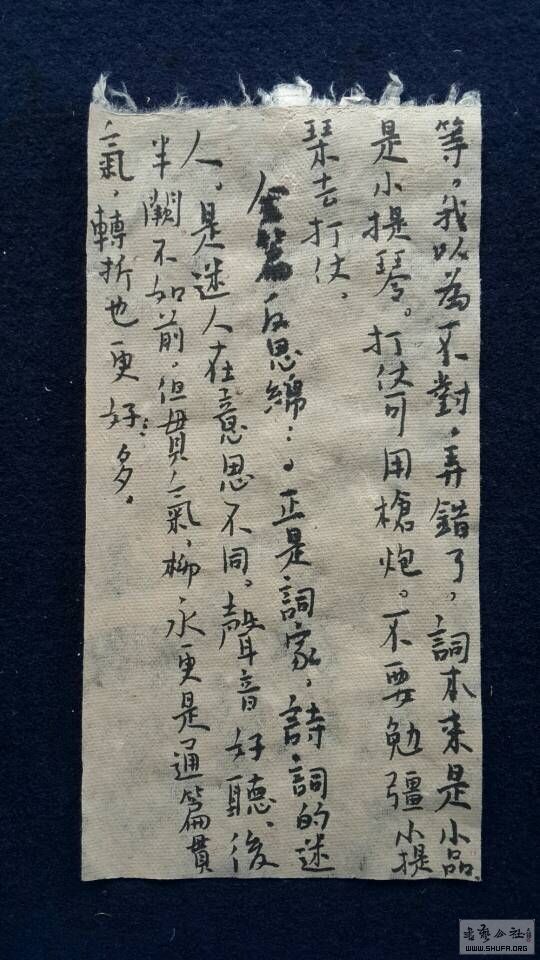 等。我以為不對，弄錯了，詞本来是小品。
是小提琴。打仗可用槍炮。不要勉彊小提
琹去打仗。
全篇反思綿：。正是詞家，詩詞的迷
人。是迷人在意思不同。聲音好聽、後
半闋不如前，但貫氣，柳永更是通篇貫
氣，轉折也更好：多。
WWW.SHUFA.ORG